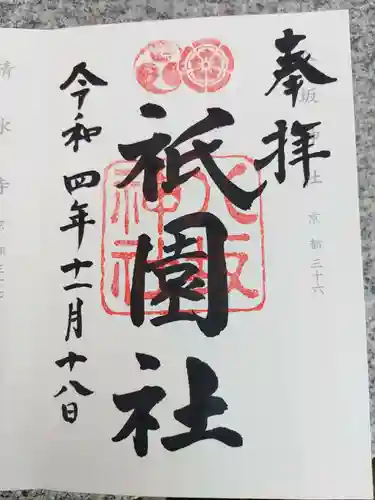 奉拝
八坂神社
京都三十六
祇園社
八坂神社
令和四年十一月十八日
清水寺
京都三十七